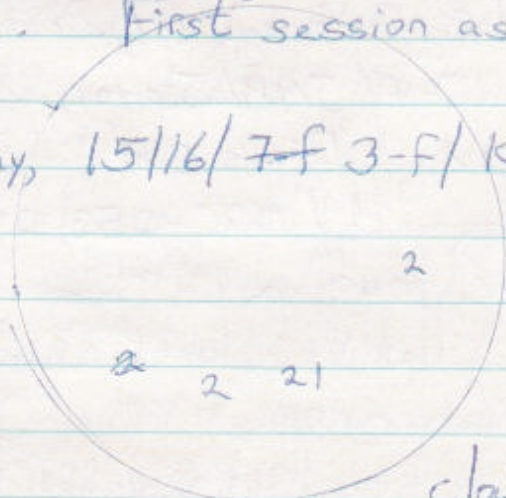 . First session as
15/16/ 7-f 3-f/
2
2 2 21